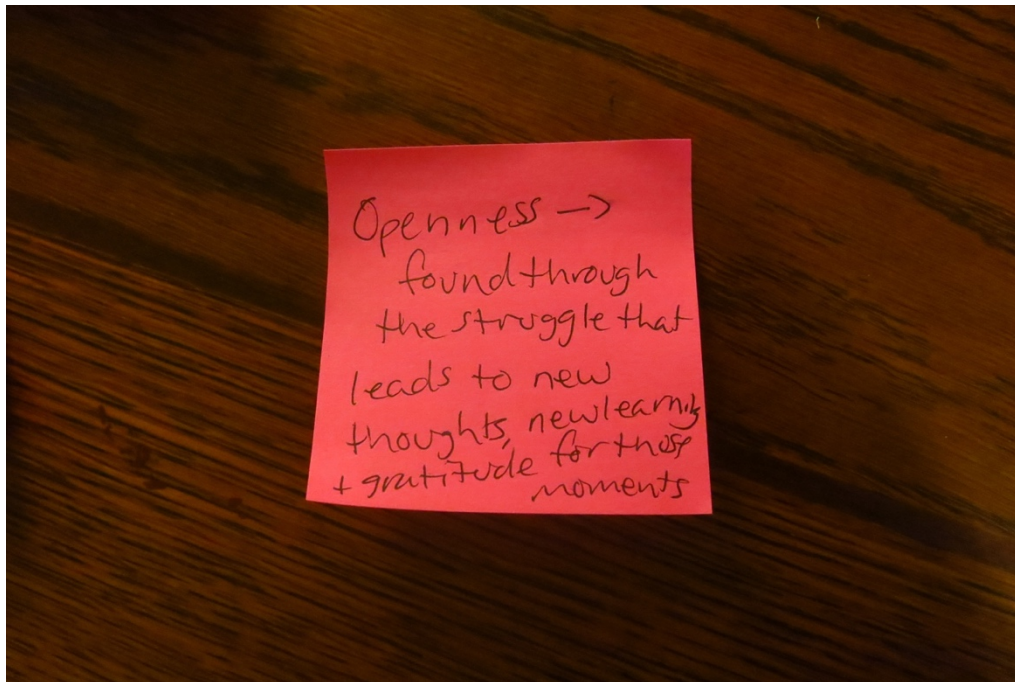 Openness →
found through
the struggle that
leads to new
thoughts, new learning
+ gratitude for those
moments